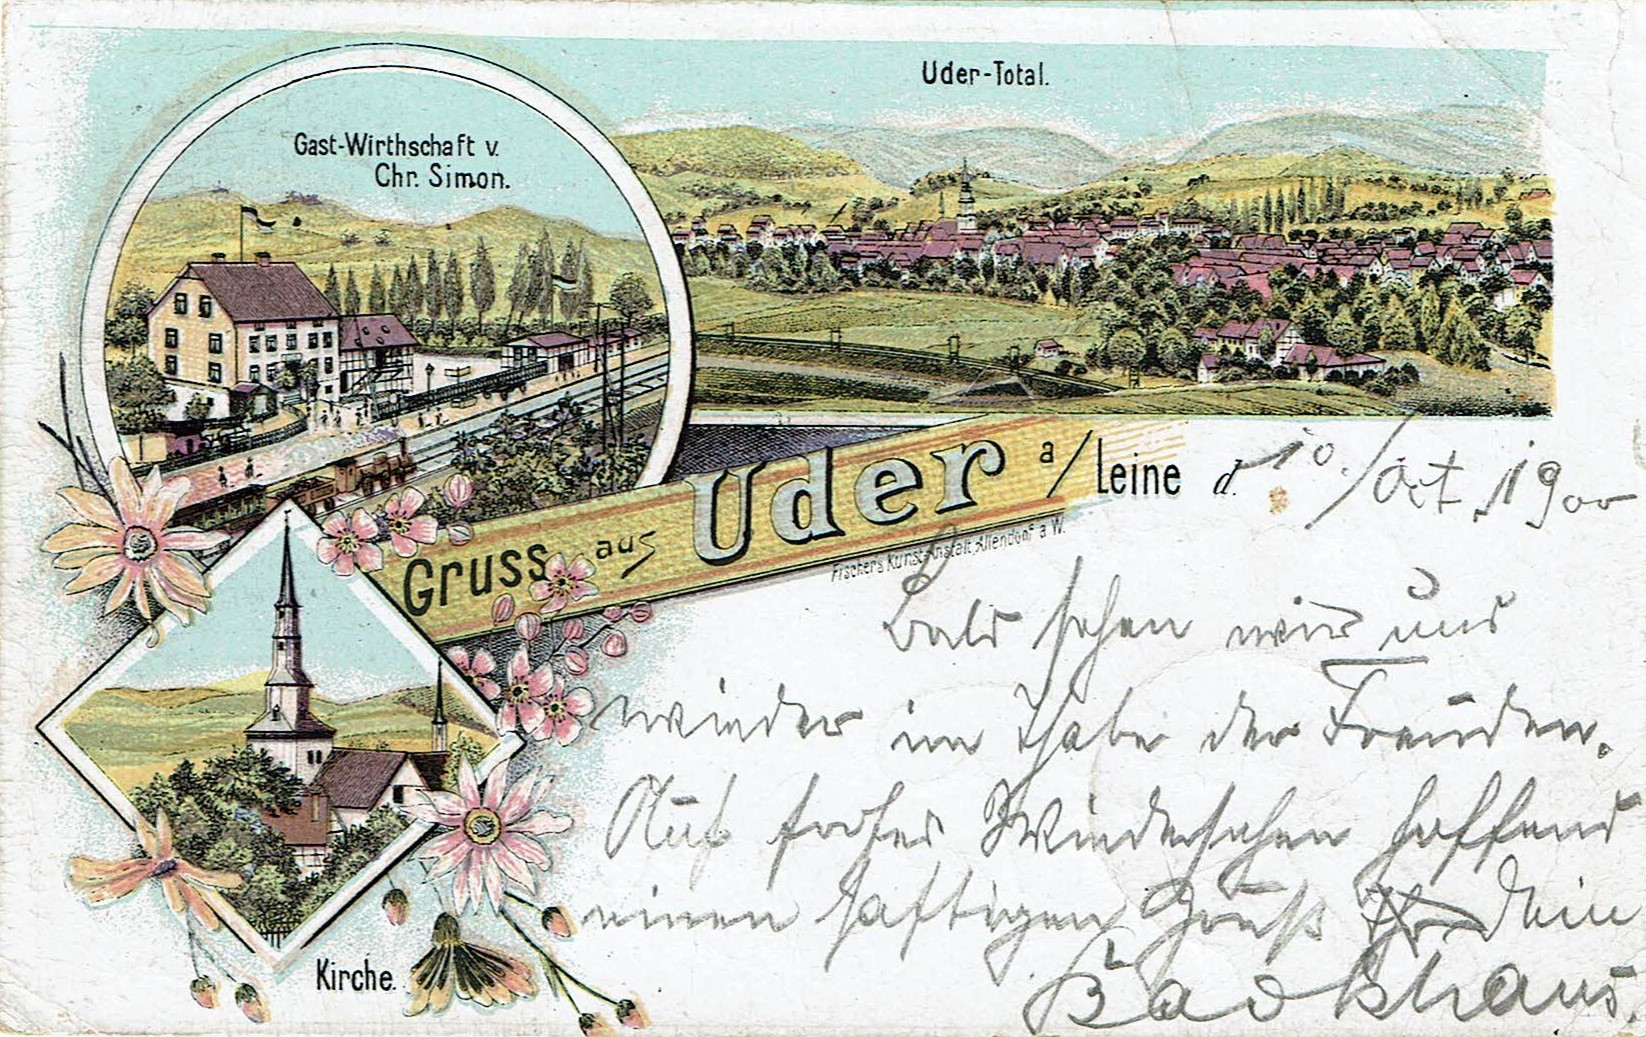 Uder-Total.
Gast-Wirthschaft v.
Chr. Simon.
Gruss aus Uder a/Leine d. 10./Oct. 1900
Fischers Kunst-Anstalt, Allendorf a. W.
Bald sehen wir uns
wieder im Thale der Freuden.
Auf frohes Wiedersehen hoffend
einen saftigen Gruß Dein
Backhaus.
Kirche.